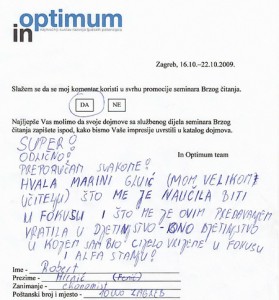 in optimum
Zagreb, 16.10.–22.10.2009.
Slažem se da se moj komentar koristi u svrhu promocije seminara Brzog čitanja.
DA NE
Najljepše Vas molimo da svoje dojmove sa službenog dijela seminara Brzog
čitanja zapišete ispod, kako bismo Vaše impresije uvrstili u katalog dojmova.
SUPER!
In Optimum team
ODLIČNO!
PREPORUČAM SVAKOME!
HVALA MARINI GLUIĆ (MOM VELIKOM
UČITELJU) ŠTO ME JE NAUČILA BITI
U FOKUSU I ŠTO ME JE OVIM PREDAVANJEM
VRATILA U DJETINJSTVO - ONO DJETINJSTVO
U KOJEM SAM BIO CIJELO VRIJEME U FOKUSU
I ALFA STANJU!
Ime - Robert
Prezime -
Zanimanje - ekonomist
Poštanski broj i mjesto - NOVI ZAGREB